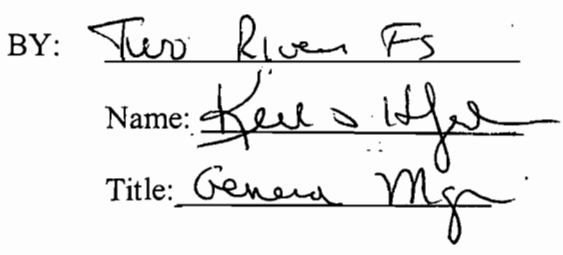 BY: Two Rivers FS
Name:
Title: General Mgr